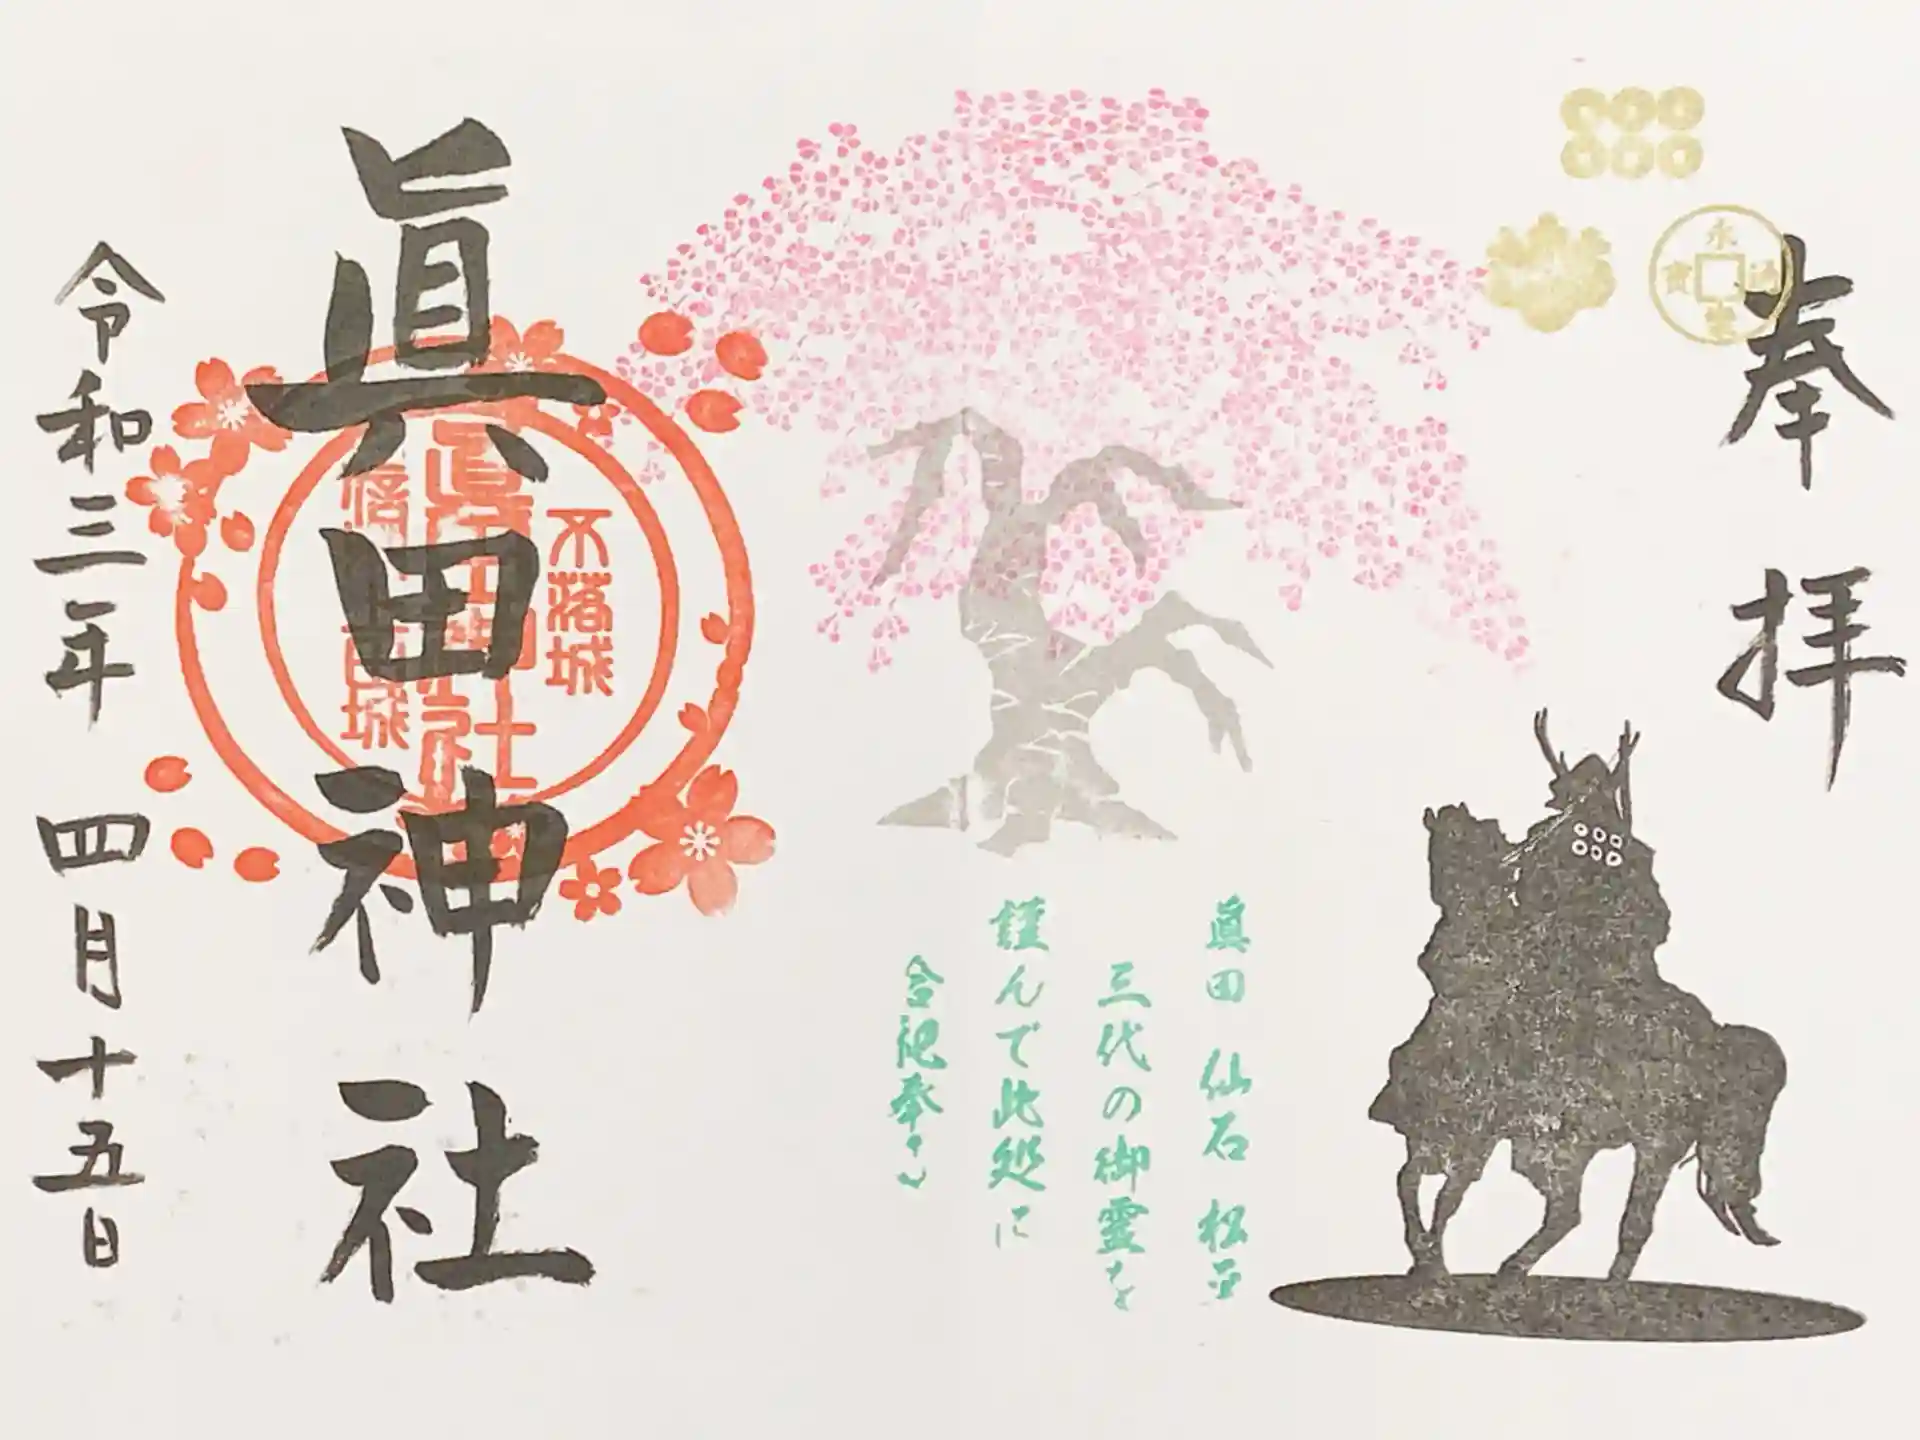 奉拝
永楽通寳
眞田 仙石 松平
三代の御霊を
謹んで此処に
合祀奉る
不落城
眞田神社
眞田神社
令和三年 四月十五日